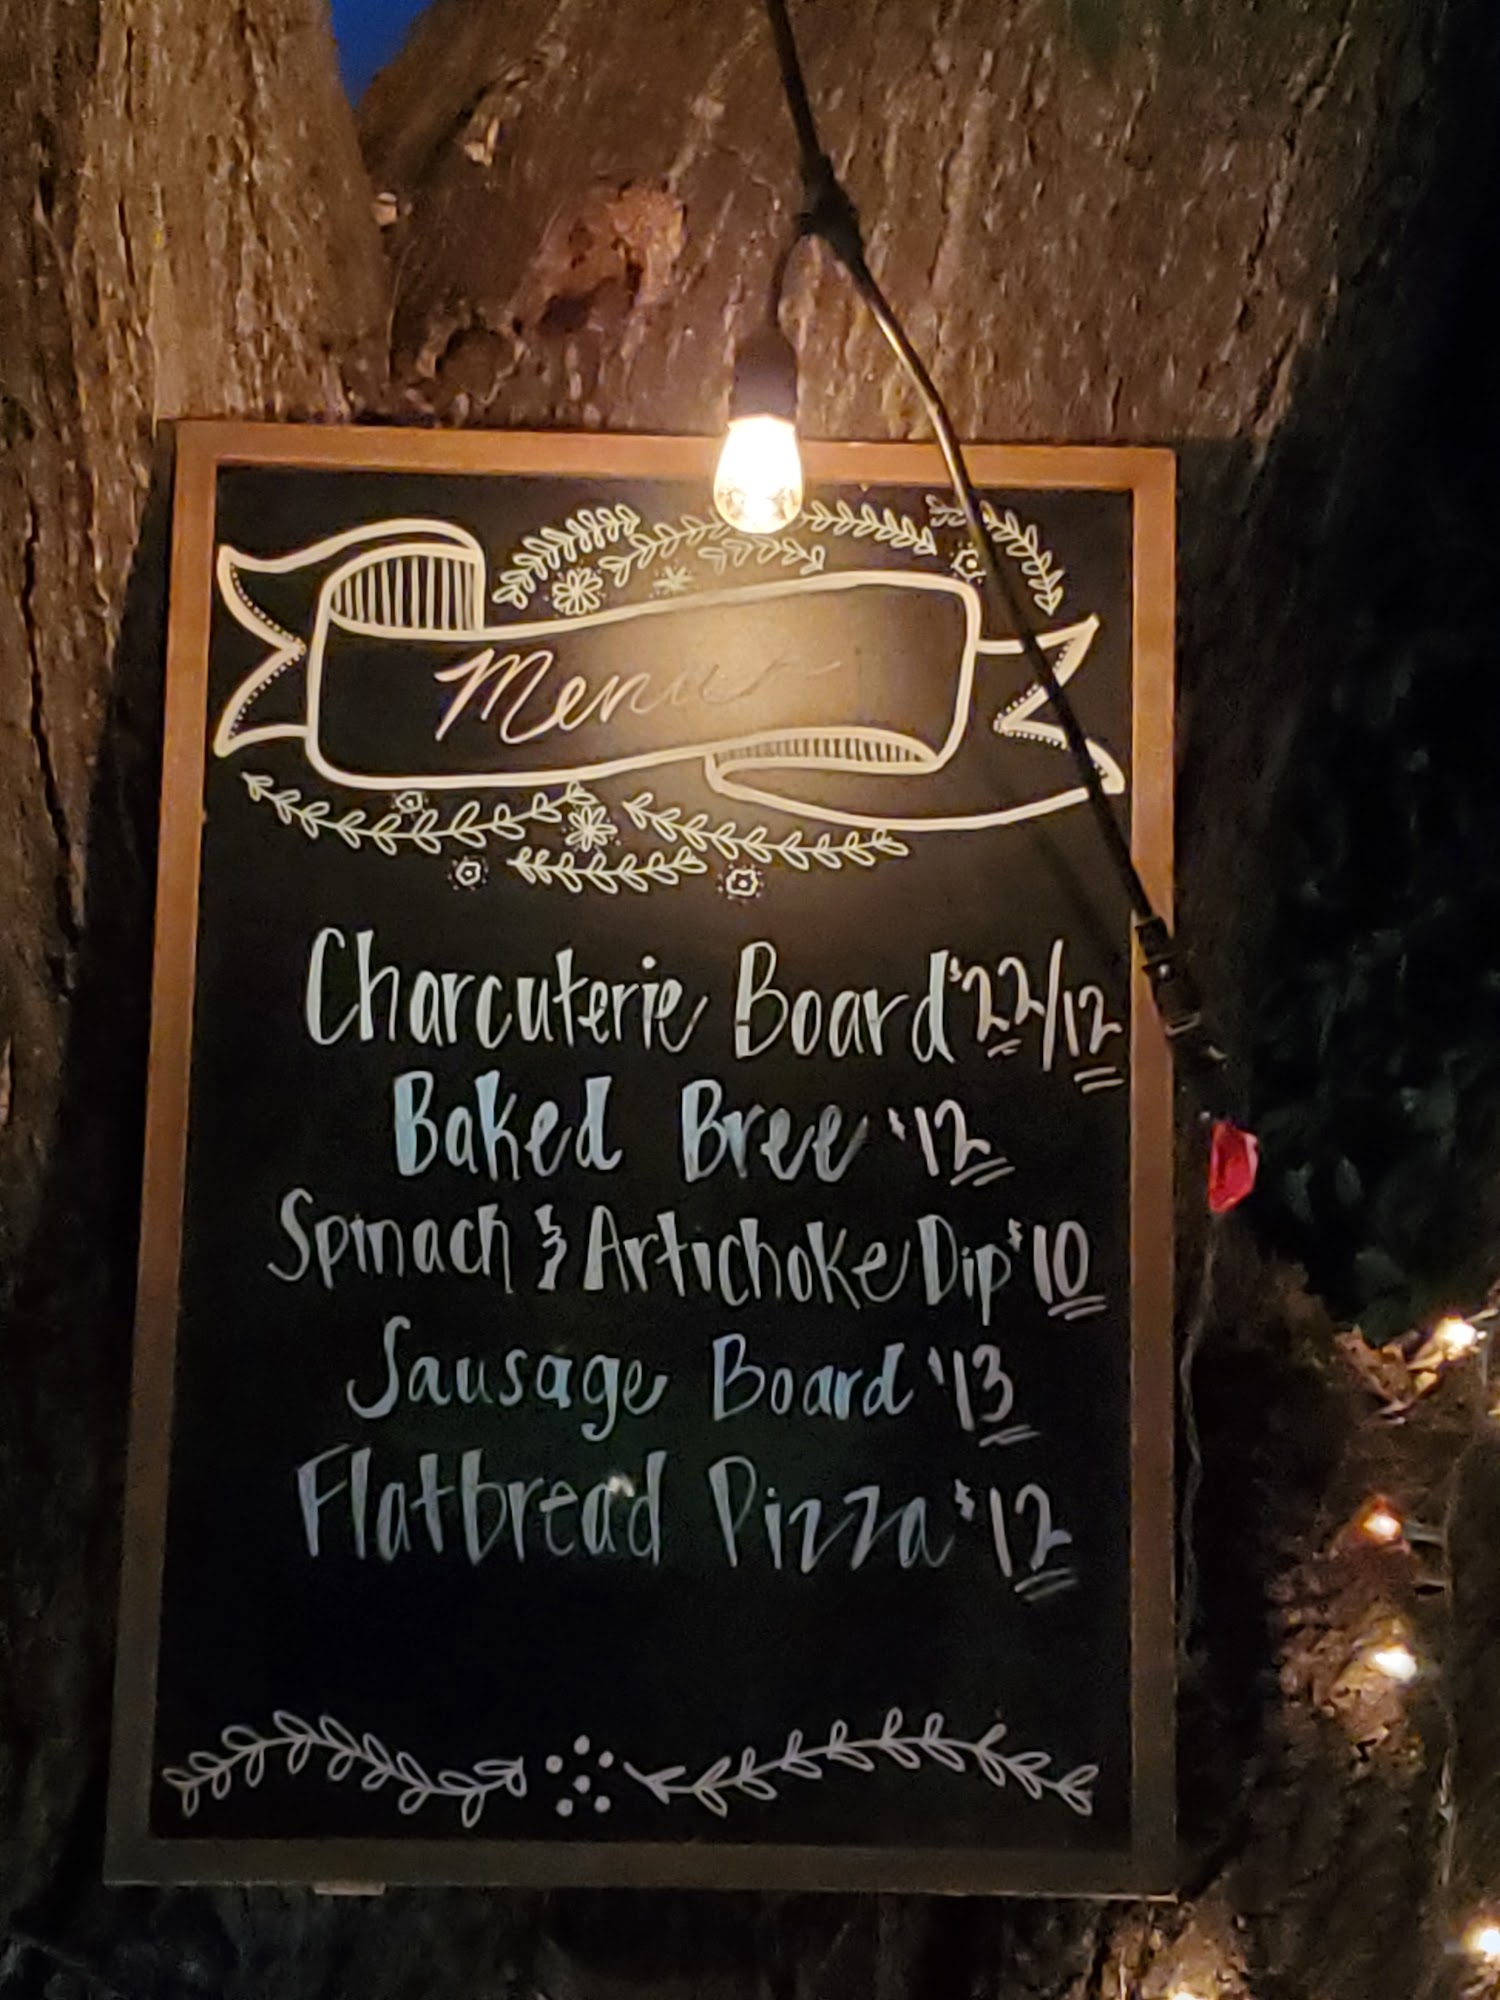 Menu
Charcuterie Board $22/12
Baked Bree $12
Spinach & Artichoke Dip $10
Sausage Board $13
Flatbread Pizza $12